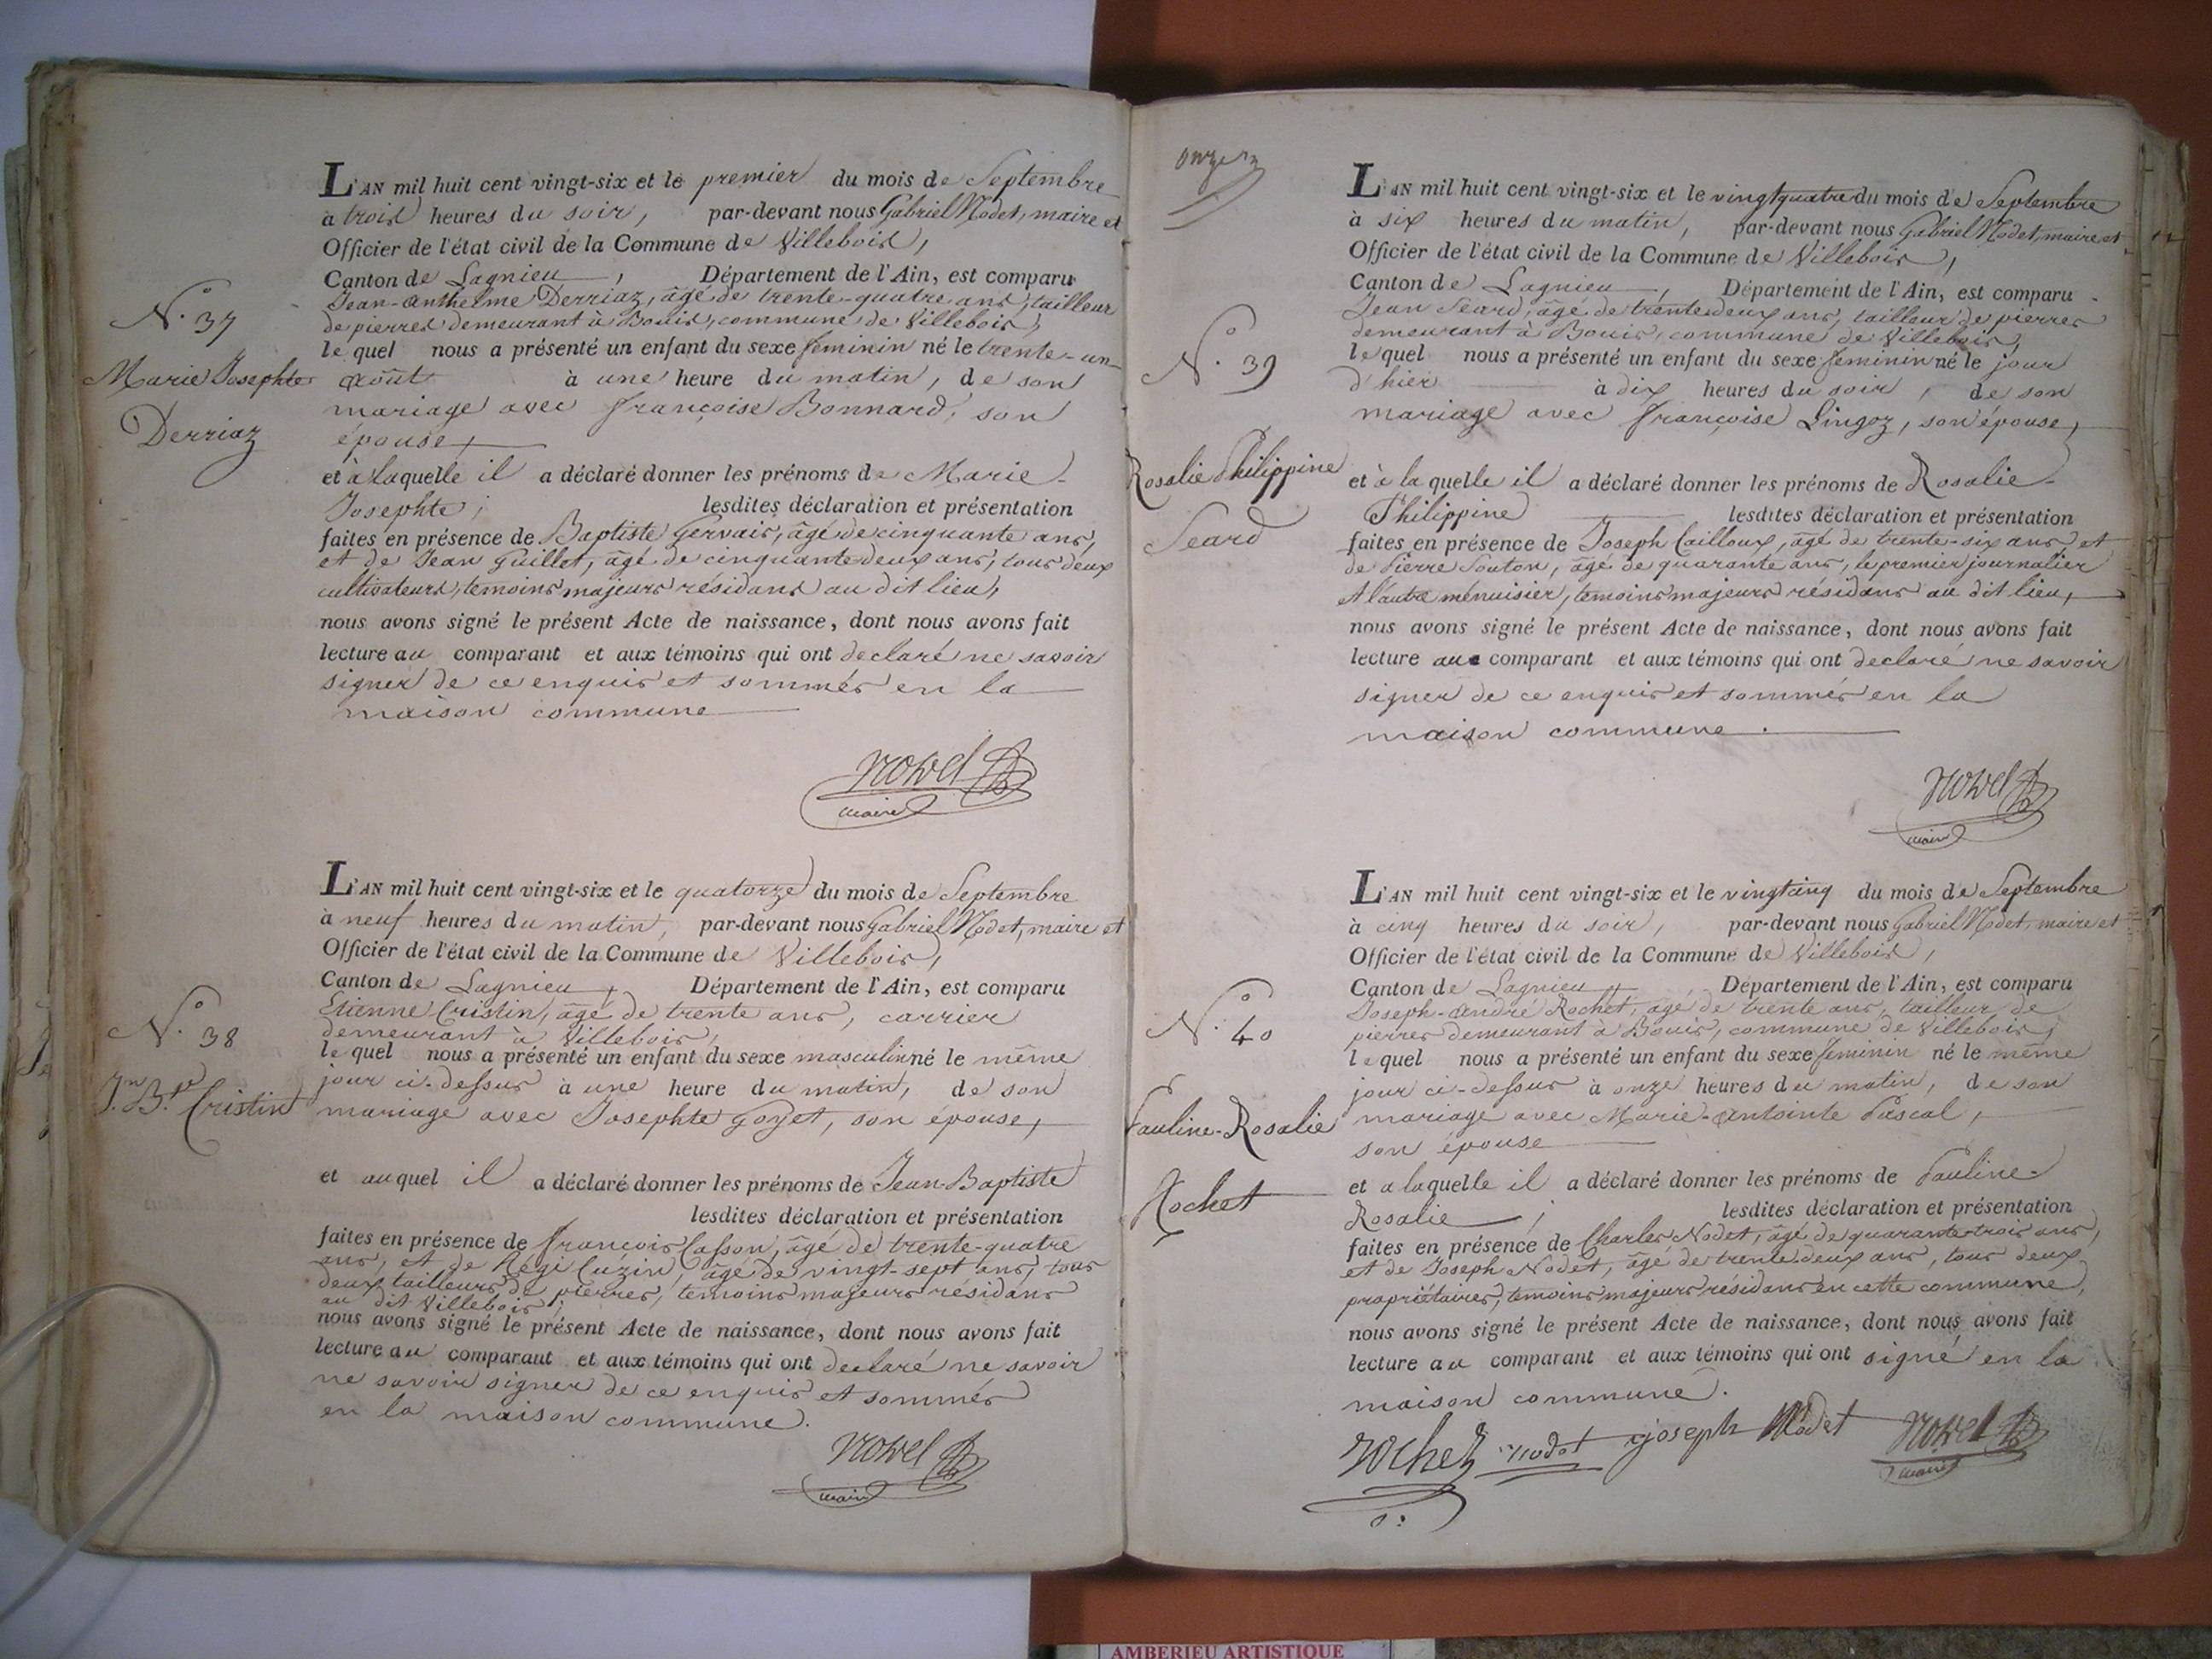 N.o 37
Marie Josephte
Derriaz
L'AN mil huit cent vingt-six et le premier du mois de Septembre
à trois heures du soir, par-devant nous Gabriel Nodet, maire et
Officier de l'état civil de la Commune de Villebois,
Canton de Lagnieu, Département de l'Ain, est comparu
Jean-Anthelme Derriaz, âgé de trente-quatre ans, tailleur
de pierres demeurant à Bouis, commune de Villebois,
lequel nous a présenté un enfant du sexe féminin né le trente-un
août à une heure du matin, de son
mariage avec françoise Bonnard, son
épouse,
et à laquelle il a déclaré donner les prénoms de Marie-
Josephte; lesdites déclaration et présentation
faites en présence de Baptiste Gervais, âgé de cinquante ans,
et de Jean Guillet, âgé de cinquante deux ans, tous deux
cultivateurs, temoins majeurs résidans au dit lieu,
nous avons signé le présent Acte de naissance, dont nous avons fait
lecture au comparant et aux témoins qui ont declaré ne savoir
signer de ce enquis et sommés en la
maison commune
Nodet
maire
N.o 38
J.n B.te Cristin
L'AN mil huit cent vingt-six et le quatorze du mois de Septembre
à neuf heures du matin, par-devant nous Gabriel Nodet, maire et
Officier de l'état civil de la Commune de Villebois,
Canton de Lagnieu, Département de l'Ain, est comparu
Etienne Cristin, âgé de trente ans, carrier
demeurant à Villebois,
lequel nous a présenté un enfant du sexe masculin né le même
jour ci-dessus à une heure du matin, de son
mariage avec Josephte Goyet, son épouse,
et auquel il a déclaré donner les prénoms de Jean-Baptiste
lesdites déclaration et présentation
faites en présence de françois Casson, âgé de trente-quatre
ans, et de Régi Cuzin, âgé de vingt-sept ans, tous
deux tailleurs de pierres, temoins majeurs résidans
au dit Villebois;
nous avons signé le présent Acte de naissance, dont nous avons fait
lecture au comparant et aux témoins qui ont declaré ne savoir
ne savoir signer de ce enquis et sommés
en la maison commune.
Nodet
maire
onze
N.o 39
Rosalie Philippine
Seard
L'AN mil huit cent vingt-six et le vingtquatre du mois de Septembre
à six heures du matin, par-devant nous Gabriel Nodet, maire et
Officier de l'état civil de la Commune de Villebois,
Canton de Lagnieu, Département de l'Ain, est comparu
Jean Seard, âgé de trente deux ans, tailleur de pierres
demeurant à Bouis, commune de Villebois,
lequel nous a présenté un enfant du sexe feminin né le jour
d'hier à dix heures du soir, de son
mariage avec françoise Lingoz, son épouse,
et à laquelle il a déclaré donner les prénoms de Rosalie-
Philippine lesdites déclaration et présentation
faites en présence de Joseph Cailloux, âgé de trente-six ans et
de Pierre Souton, âgé de quarante ans, le premier journalier
et l'autre ménuisier, témoins majeurs résidans au dit lieu,
nous avons signé le présent Acte de naissance, dont nous avons fait
lecture au comparant et aux témoins qui ont declaré ne savoir
signer de ce enquis et sommés en la
maison commune.
Nodet
maire
N.o 40
Pauline-Rosalie
Rochet
L'AN mil huit cent vingt-six et le vingtcinq du mois de Septembre
à cinq heures du soir, par-devant nous Gabriel Nodet, maire et
Officier de l'état civil de la Commune de Villebois,
Canton de Lagnieu, Département de l'Ain, est comparu
Joseph-André Rochet, âgé de trente ans, tailleur de
pierres demeurant à Bouis, commune de Villebois,
lequel nous a présenté un enfant du sexe feminin né le même
jour ci-dessus à onze heures du matin, de son
mariage avec Marie-Antointe Pascal,
son épouse
et à laquelle il a déclaré donner les prénoms de Pauline-
Rosalie; lesdites déclaration et présentation
faites en présence de Charles Nodet, âgé de quarante trois ans,
et de Joseph Nodet, âgé de trente deux ans, tous deux
propriétaires, temoins majeurs résidans en cette commune,
nous avons signé le présent Acte de naissance, dont nous avons fait
lecture au comparant et aux témoins qui ont signé en la
maison commune.
Rochet nodet joseph Nodet Nodet
maire
AMBERIEU ARTISTIQUE